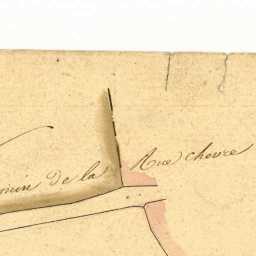 min de la Rue chevre